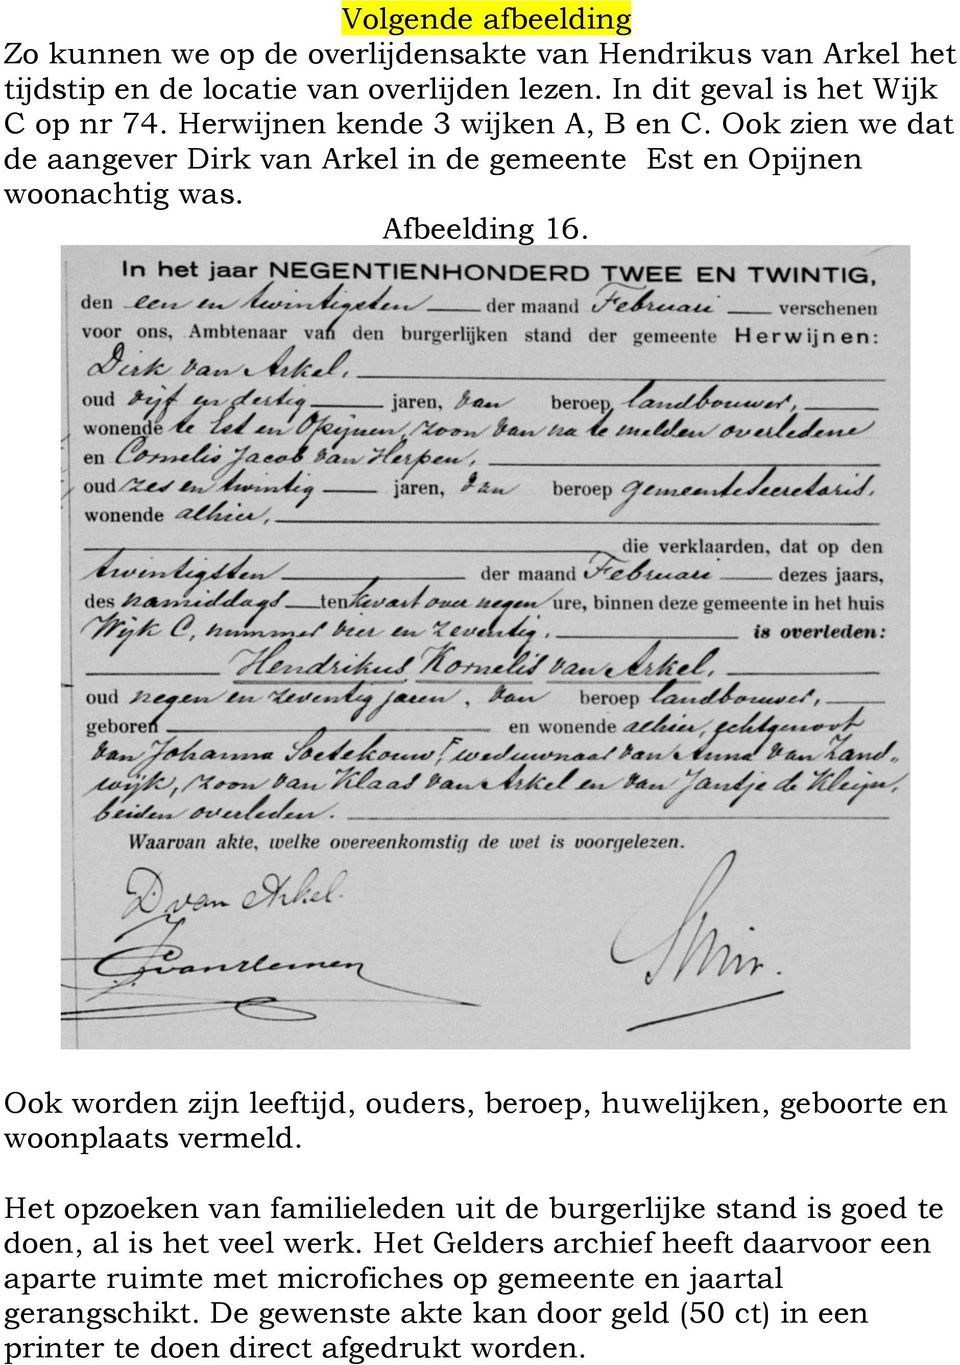 Volgende afbeelding
Zo kunnen we op de overlijdensakte van Hendrikus van Arkel het
tijdstip en de locatie van overlijden lezen. In dit geval is het Wijk
C op nr 74. Herwijnen kende 3 wijken A, B en C. Ook zien we dat
de aangever Dirk van Arkel in de gemeente Est en Opijnen
woonachtig was.
Afbeelding 16.
In het jaar NEGENTIENHONDERD TWEE EN TWINTIG,
den een en twintigsten der maand Februari verschenen
voor ons, Ambtenaar van den burgerlijken stand der gemeente Herwijnen:
Dirk van Arkel,
oud vijf en dertig jaren, van beroep landbouwer,
wonende te Est en Opijnen, zoon van na te melden overledene
en Cornelis Jacob van Herpen,
oud zes en twintig jaren, van beroep gemeentesecretaris,
wonende alhier,
die verklaarden, dat op den
twintigsten der maand Februari dezes jaars,
des namiddags ten kwart over negen ure, binnen deze gemeente in het huis
Wijk C, nummer vier en zeventig, is overleden:
Hendrikus Kornelis van Arkel,
oud negen en zeventig jaren, van beroep landbouwer,
geboren en wonende alhier, echtgenoot
van Johanna Soetekouw, weduwnaar van Anna van Zand-
wijk, zoon van Klaas van Arkel en van Jantje de Kleijn,
beiden overleden.
Waarvan akte, welke overeenkomstig de wet is voorgelezen.
D van Arkel.
Ook worden zijn leeftijd, ouders, beroep, huwelijken, geboorte en
woonplaats vermeld.
Het opzoeken van familieleden uit de burgerlijke stand is goed te
doen, al is het veel werk. Het Gelders archief heeft daarvoor een
aparte ruimte met microfiches op gemeente en jaartal
gerangschikt. De gewenste akte kan door geld (50 ct) in een
printer te doen direct afgedrukt worden.